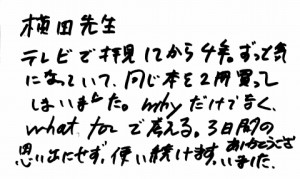 横田先生
テレビで拝見してから4年。ずっと気
になっていて、同じ本を2冊買って
しまいました。whyだけでなく、
what forで考える。3日間の
思い出にせず、使い続けます。ありがとうござ
いました。